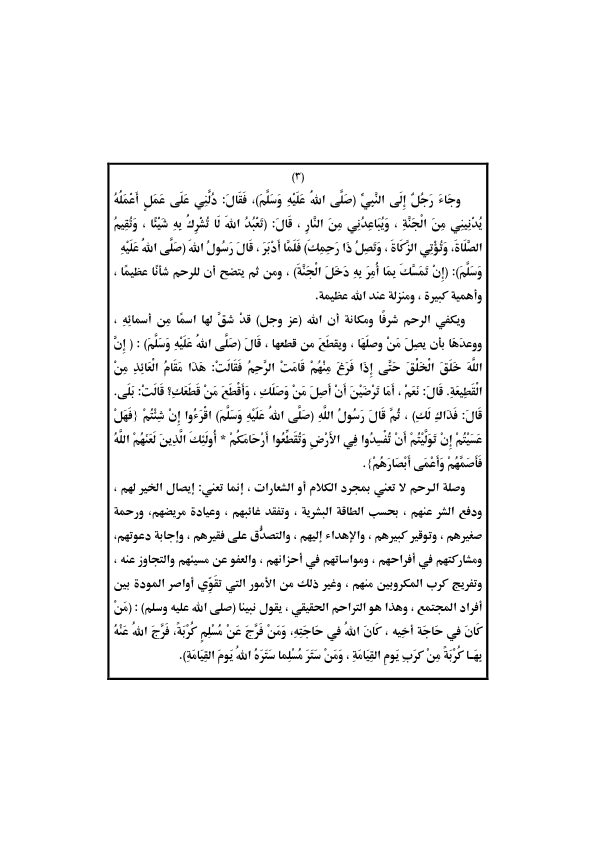 (٣)
وجَاءَ رَجُلٌ إِلَى النَّبِيِّ (صَلَّى اللهُ عَلَيْهِ وَسَلَّمَ)، فَقَالَ: دُلَّنِي عَلَى عَمَلٍ أَعْمَلُهُ
يُدْنِينِي مِنَ الْجَنَّةِ ، وَيُبَاعِدُنِي مِنَ النَّارِ ، قَالَ: (تَعْبُدُ اللهَ لَا تُشْرِكُ بِهِ شَيْئًا ، وَتُقِيمُ
الصَّلَاةَ، وَتُؤْتِي الزَّكَاةَ ، وَتَصِلُ ذَا رَحِمِكَ) فَلَمَّا أَدْبَرَ ، قَالَ رَسُولُ اللهِ (صَلَّى اللهُ عَلَيْهِ
وَسَلَّمَ): (إِنْ تَمَسَّكَ بِمَا أُمِرَ بِهِ دَخَلَ الْجَنَّةَ) ، ومن ثم يتضح أن للرحم شأنًا عظيمًا ،
وأهمية كبيرة ، ومنزلة عند الله عظيمة.
ويكفي الرحم شرفًا ومكانة أن الله (عز وجل) قدْ شقَّ لها اسمًا مِن أسمائِهِ ،
ووعدَهَا بأن يصِلَ مَنْ وصلَهَا ، ويقطَعَ من قطعها ، قَالَ (صَلَّى اللهُ عَلَيْهِ وَسَلَّمَ) : ( إِنَّ
اللَّهَ خَلَقَ الْخَلْقَ حَتَّى إِذَا فَرَغَ مِنْهُمْ قَامَتْ الرَّحِمُ فَقَالَتْ: هَذَا مَقَامُ الْعَائِذِ مِنْ
الْقَطِيعَةِ. قَالَ: نَعَمْ ، أَمَا تَرْضَيْنَ أَنْ أَصِلَ مَنْ وَصَلَكِ ، وَأَقْطَعَ مَنْ قَطَعَكِ؟ قَالَتْ: بَلَى.
قَالَ: فَذَاكِ لَكِ) ، ثُمَّ قَالَ رَسُولُ اللَّهِ (صَلَّى اللهُ عَلَيْهِ وَسَلَّمَ) اقْرَءُوا إِنْ شِئْتُمْ {فَهَلْ
عَسَيْتُمْ إِنْ تَوَلَّيْتُمْ أَنْ تُفْسِدُوا فِي الأَرْضِ وَتُقَطِّعُوا أَرْحَامَكُمْ * أُولَئِكَ الَّذِينَ لَعَنَهُمُ اللَّهُ
فَأَصَمَّهُمْ وَأَعْمَى أَبْصَارَهُمْ}.
وصلة الرحم لا تعني بمجرد الكلام أو الشعارات ، إنما تعني: إيصال الخير لهم ،
ودفع الشر عنهم ، بحسب الطاقة البشرية ، وتفقد غائبهم ، وعيادة مريضهم، ورحمة
صغيرهم ، وتوقير كبيرهم ، والإهداء إليهم ، والتصدُّق على فقيرهم ، وإجابة دعوتهم،
ومشاركتهم في أفراحهم ، ومواساتهم في أحزانهم ، والعفو عن مسيئهم والتجاوز عنه ،
وتفريج كرب المكروبين منهم ، وغير ذلك من الأمور التي تقَوِّي أواصر المودة بين
أفراد المجتمع ، وهذا هو التراحم الحقيقي ، يقول نبينا (صلى الله عليه وسلم) : (مَنْ
كَانَ في حَاجَة أخيه ، كَانَ اللهُ في حَاجَتِهِ، وَمَنْ فَرَّجَ عَنْ مُسْلِمٍ كُرْبَةً، فَرَّجَ اللهُ عَنْهُ
بِهَـا كُرْبَةً مِنْ كرَبِ يَومِ القِيَامَةِ ، وَمَنْ سَتَرَ مُسْلِما سَتَرَهُ اللهُ يَومَ القِيَامَةِ).